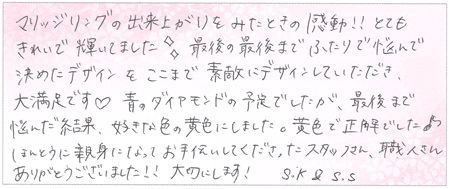 マリッジリングの出来上がりをみたときの感動!! とても
きれいで輝いてました✧ 最後の最後までふたりで悩んで
決めたデザインをここまで素敵にデザインしていただき、
大満足です♡ 青のダイヤモンドの予定でしたが、最後まで
悩んだ結果、好きな色の黄色にしました。黄色で正解でした♪
ほんとうに親身になってお手伝いしてくださったスタッフさん、職人さん
ありがとうございました!! 大切にします! S.K & S.S